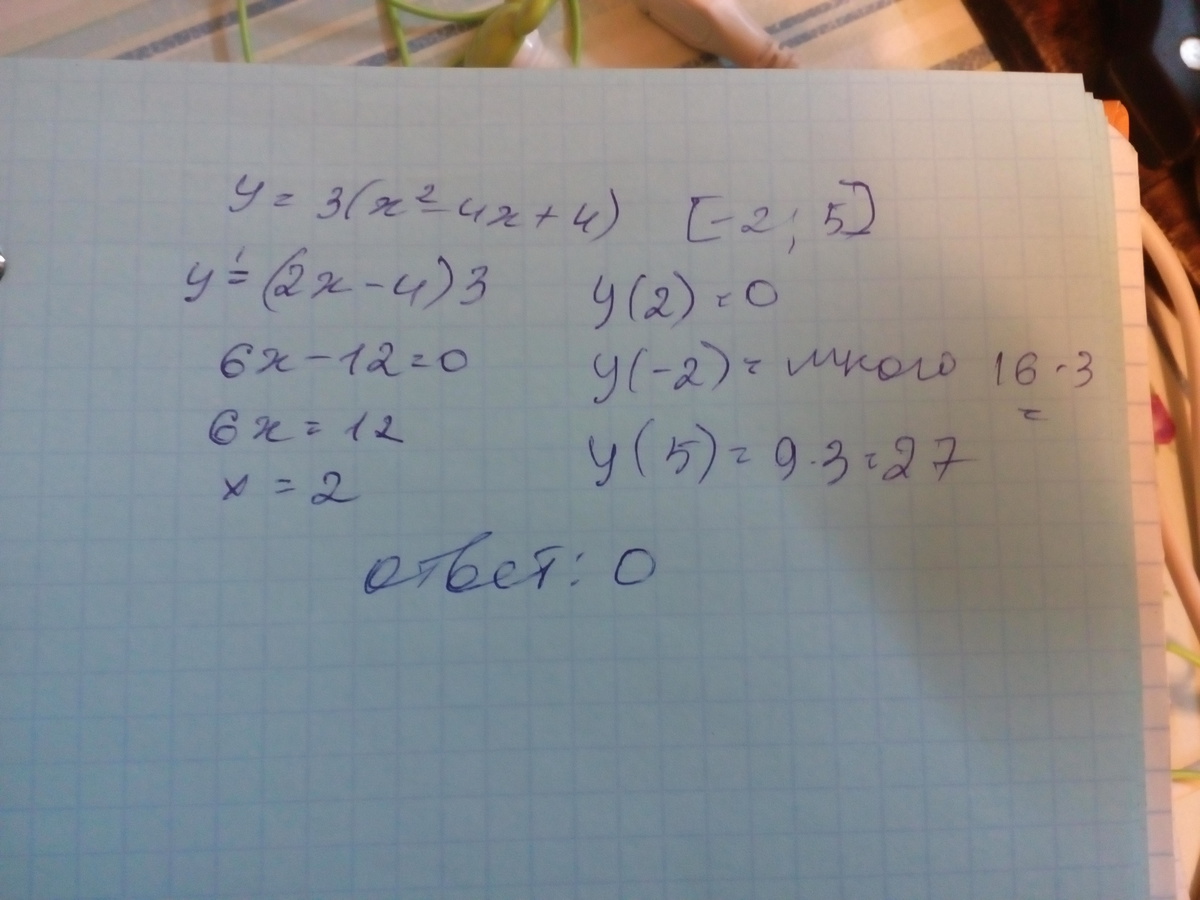 y = 3(x² - 4x + 4) [-2; 5]
y' = (2x - 4)3
6x - 12 = 0
6x = 12
x = 2
y(2) = 0
y(-2) = много 16·3
=
y(5) = 9·3 = 27
ответ: 0